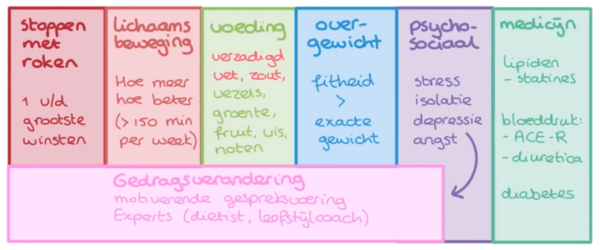 stoppen
met
roken
1 v/d
grootste
winsten
lichaams
beweging
Hoe meer
hoe beter
(>150 min
per week)
voeding
verzadigd
vet, zout,
vezels,
groente,
fruit, vis,
noten
over-
gewicht
fitheid
>
exacte
gewicht
psycho-
sociaal
stress
isolatie
depressie
angst
medicijn
lipiden
- statines
bloeddruk:
- ACE-R
- diuretica
diabetes
Gedragsverandering
motiverende gespreksvoering
Experts (dietist, leefstijlcoach)